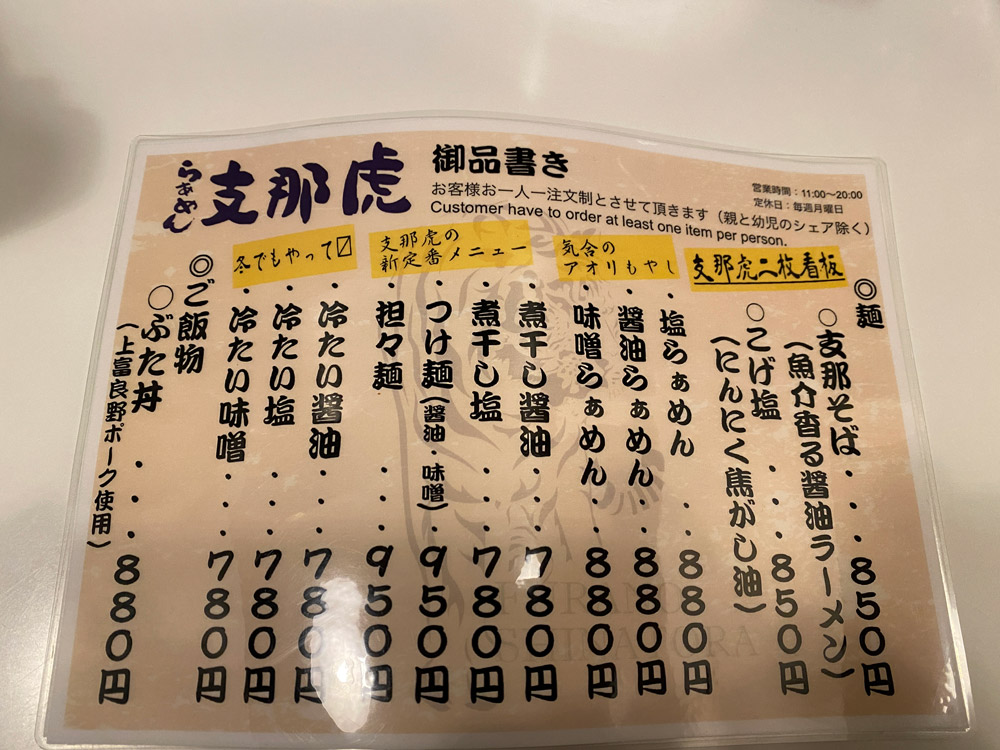 らぁめん
支那虎
御品書き
お客様お一人一注文制とさせて頂きます(親と幼児のシェア除く)
Customer have to order at least one item per person.
営業時間:11:00~20:00
定休日:毎週月曜日
◎麺
支那虎二枚看板
○支那そば・・・850円
(魚介香る醤油ラーメン)
○こげ塩・・・850円
(にんにく焦がし油)
気合の
アオリもやし
・塩らぁめん・・・880円
・醤油らぁめん・・880円
・味噌らぁめん・・880円
支那虎の
新定番メニュー
・煮干し醤油・・・780円
・煮干し塩・・・780円
・つけ麺(醤油・味噌)・950円
・担々麺・・・950円
冬でもやって〼
・冷たい醤油・・・780円
・冷たい塩・・・780円
・冷たい味噌・・・780円
◎ご飯物
○ぶた丼・・・880円
(上富良野ポーク使用)